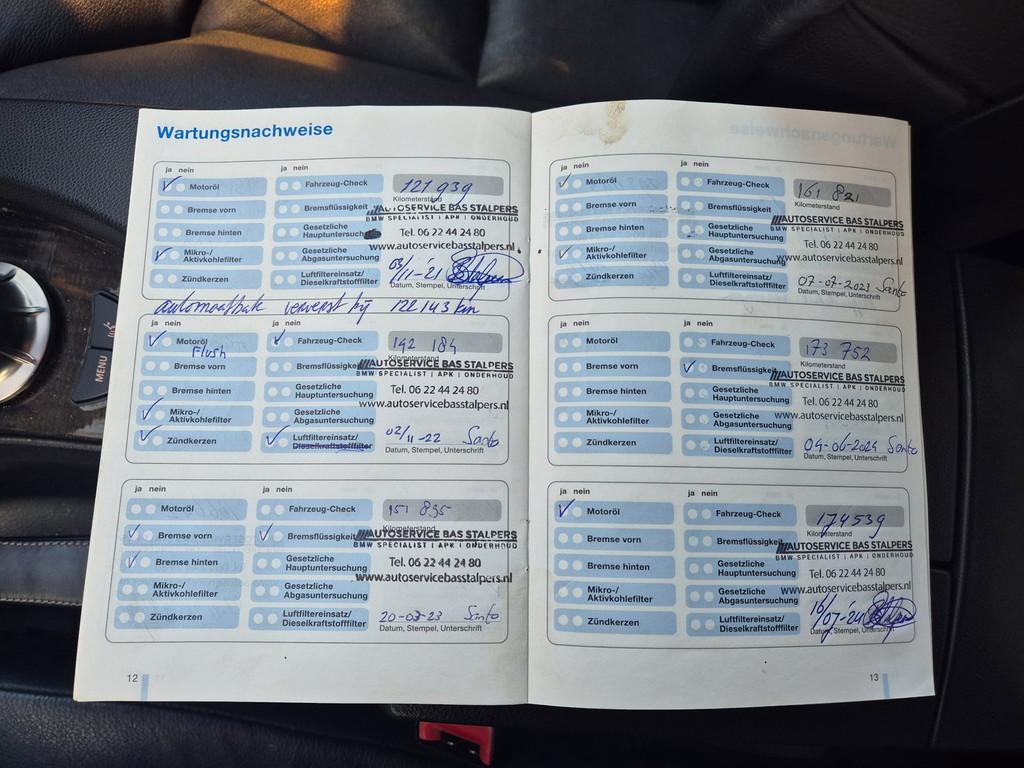 Wartungsnachweise
ja nein ja nein
Motoröl Fahrzeug-Check 121 939
Kilometerstand
Bremse vorn Bremsflüssigkeit AUTOSERVICE BAS STALPERS
BMW SPECIALIST | APK | ONDERHOUD
Bremse hinten Gesetzliche Hauptuntersuchung Tel. 06 22 44 24 80
www.autoservicebasstalpers.nl
Mikro-/Aktivkohlefilter Gesetzliche Abgasuntersuchung 03/11-'21
Zündkerzen Luftfiltereinsatz/Dieselkraftstofffilter Datum, Stempel, Unterschrift
automaatbak ververst bij 122143 km
ja nein ja nein
Motoröl Fahrzeug-Check 142 184
Flush
Kilometerstand
Bremse vorn Bremsflüssigkeit AUTOSERVICE BAS STALPERS
BMW SPECIALIST | APK | ONDERHOUD
Bremse hinten Gesetzliche Hauptuntersuchung Tel. 06 22 44 24 80
www.autoservicebasstalpers.nl
Mikro-/Aktivkohlefilter Gesetzliche Abgasuntersuchung
Zündkerzen Luftfiltereinsatz/Dieselkraftstofffilter 02/11-22 Santo
Datum, Stempel, Unterschrift
ja nein ja nein
Motoröl Fahrzeug-Check 151 895
Kilometerstand
Bremse vorn Bremsflüssigkeit AUTOSERVICE BAS STALPERS
BMW SPECIALIST | APK | ONDERHOUD
Bremse hinten Gesetzliche Hauptuntersuchung Tel. 06 22 44 24 80
www.autoservicebasstalpers.nl
Mikro-/Aktivkohlefilter Gesetzliche Abgasuntersuchung
Zündkerzen Luftfiltereinsatz/Dieselkraftstofffilter 20-03-23 Santo
Datum, Stempel, Unterschrift
12
ja nein ja nein
Motoröl Fahrzeug-Check 161 821
Kilometerstand
Bremse vorn Bremsflüssigkeit AUTOSERVICE BAS STALPERS
BMW SPECIALIST | APK | ONDERHOUD
Bremse hinten Gesetzliche Hauptuntersuchung Tel. 06 22 44 24 80
Mikro-/Aktivkohlefilter Gesetzliche Abgasuntersuchung www.autoservicebasstalpers.nl
Zündkerzen Luftfiltereinsatz/Dieselkraftstofffilter 07-07-2023 Santo
Datum, Stempel, Unterschrift
ja nein ja nein
Motoröl Fahrzeug-Check 173 752
Kilometerstand
Bremse vorn Bremsflüssigkeit AUTOSERVICE BAS STALPERS
BMW SPECIALIST | APK | ONDERHOUD
Bremse hinten Gesetzliche Hauptuntersuchung Tel. 06 22 44 24 80
Mikro-/Aktivkohlefilter Gesetzliche Abgasuntersuchung www.autoservicebasstalpers.nl
Zündkerzen Luftfiltereinsatz/Dieselkraftstofffilter 04-06-2024 Santo
Datum, Stempel, Unterschrift
ja nein ja nein
Motoröl Fahrzeug-Check 174539
Kilometerstand
Bremse vorn Bremsflüssigkeit AUTOSERVICE BAS STALPERS
BMW SPECIALIST | APK | ONDERHOUD
Bremse hinten Gesetzliche Hauptuntersuchung Tel. 06 22 44 24 80
Mikro-/Aktivkohlefilter Gesetzliche Abgasuntersuchung www.autoservicebasstalpers.nl
Zündkerzen Luftfiltereinsatz/Dieselkraftstofffilter 16/07-'24
Datum, Stempel, Unterschrift
13
MENU